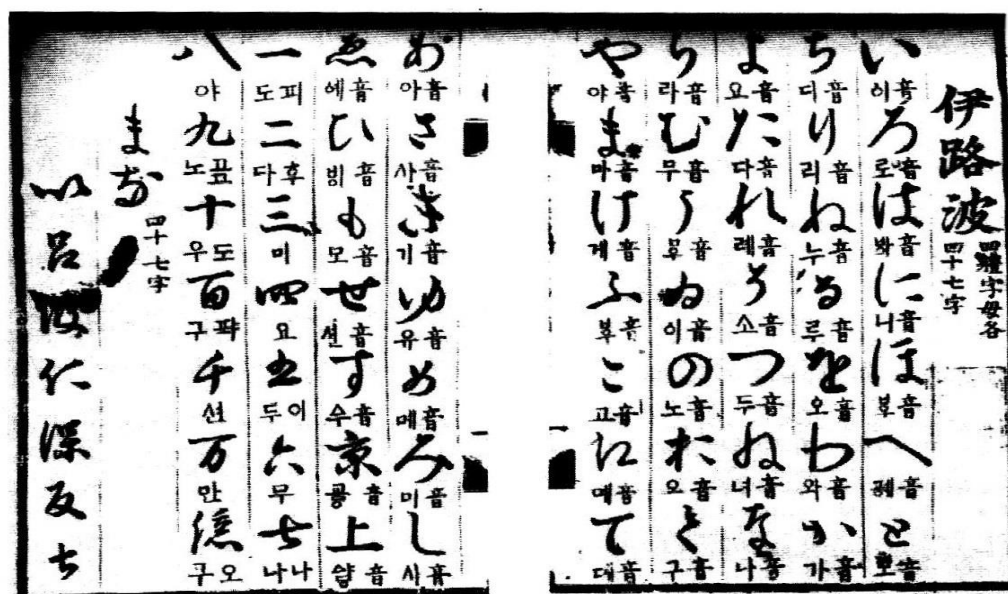 伊路波 四體字母各四十七字
い 이音 ろ 로音 は 봐音 に 니音 ほ 보音 へ 폐音 と 호音
ち 디音 り 리音 ぬ 누音 る 루音 を 오音 わ 와音 か 가音
よ 요音 た 다音 れ 례音 そ 소音 つ 두音 ね 녀音 な 나音
ら 라音 む 무音 う 우音 ゐ 이音 の 노音 お 오音 く 구音
や 야音 ま 마音 け 계音 ふ 부音 こ 고音 え 예音 て 데音
あ 아音 さ 사音 き 기音 ゆ 유音 め 메音 み 미音 し 시音
ゑ 에音 ひ 빙音 も 모音 せ 션音 す 수音 京 音 上 音
一 피도 二 후다 三 미 四 요 五 이두 六 무 七 나나
八 야 九 노 十 도우 百 퍅구 千 션 万 만 億 오구
まな 四十七字
以呂波仁保反止